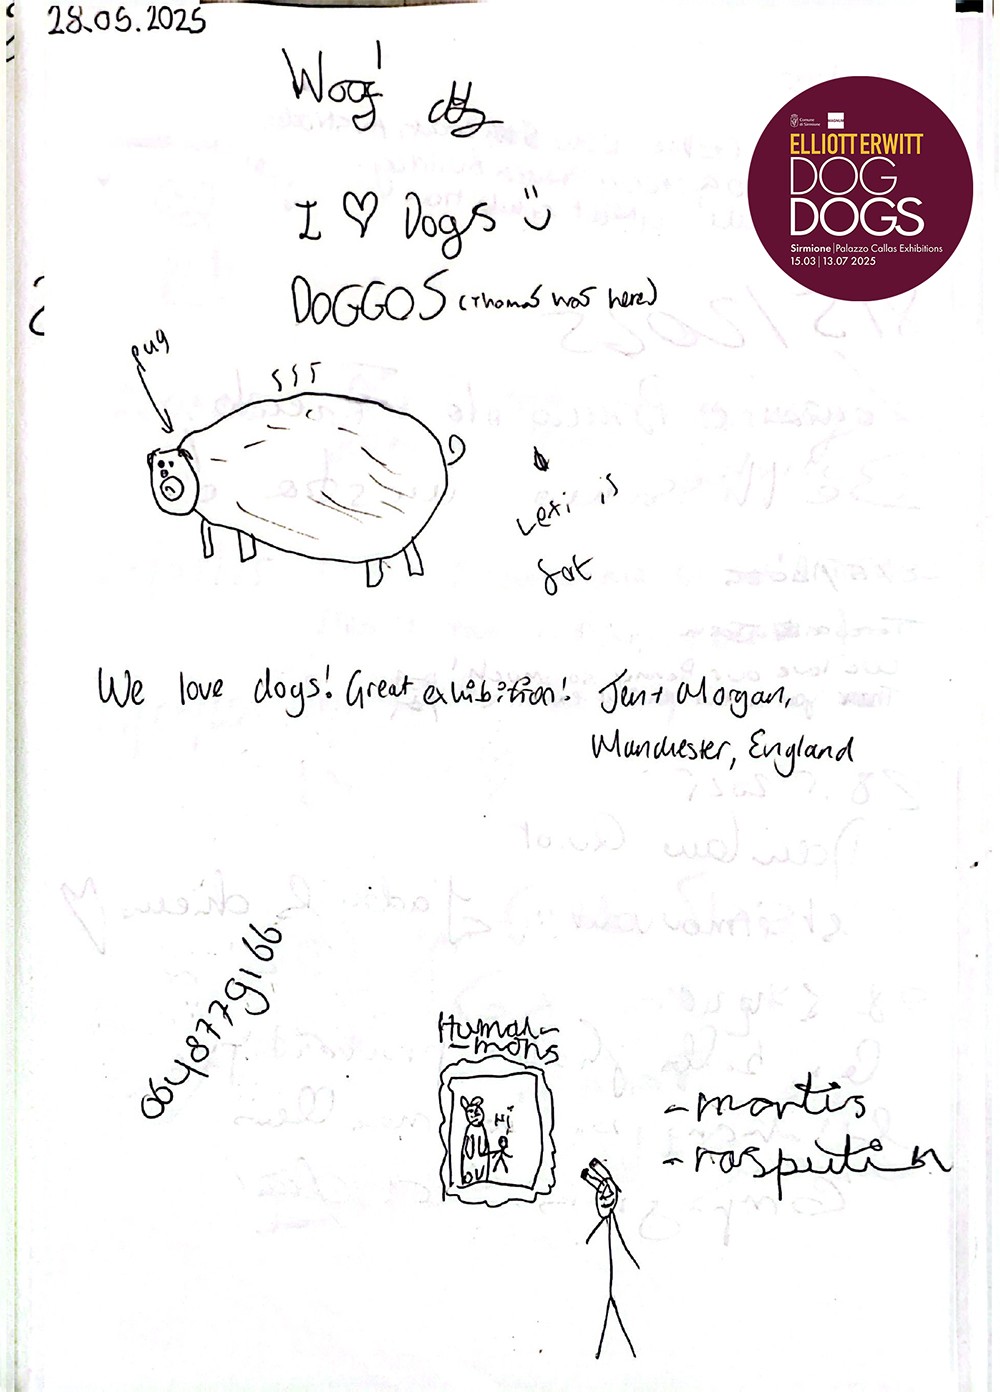 28.05.2025
Woof!
Comune
di Sirmione
MAGNUM
ELLIOTT ERWITT
DOG
DOGS
Sirmione | Palazzo Callas Exhibitions
15.03 | 13.07 2025
I ♡ Dogs
DOGGOS (Thomas was here)
pug
Lexi is
fat
We love dogs! Great exhibition! Jen + Morgan,
Manchester, England
0648779166
Humal-
-mons
Hi
-mortis
-rasputin